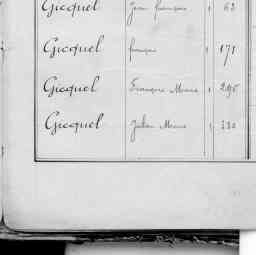 Gicquel Jean françois 1 62
Gicquel françois 1 171
Gicquel François Marie 1 296
Gicquel Julien Marie 1 330